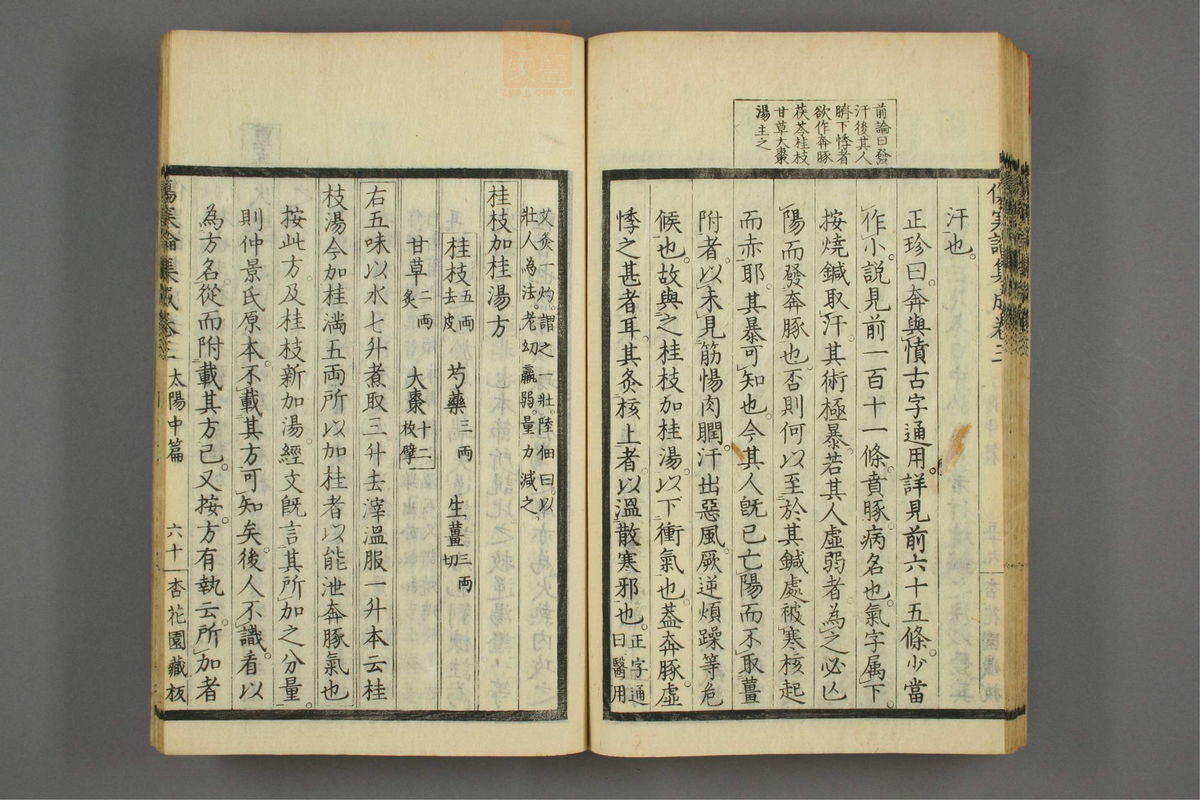 前論曰發
汗後其人
臍下悸者
欲作奔豚
茯苓桂枝
甘草大棗
湯主之
傷寒論集成卷三
汗也。
正珍曰。奔與憤古字通用。詳見前六十五條。少當
作小。說見前一百十一條。賁豚病名也。氣字属下。
按燒鍼取汗。其術極暴。若其人虛弱者。為之必亾
陽而發奔豚也。否則何以至於其鍼處被寒核起
而赤耶。其暴可知也。今其人旣已亡陽而不取薑
附者。以未見筋惕肉瞤。汗出惡風。厥逆煩躁等危
候也。故與之桂枝加桂湯。以下衝氣也。葢奔豚虛
悸之甚者耳。其灸核上者。以溫散寒邪也。正字通
曰醫用
艾灸一灼。謂之一壯。陸佃曰。以
壯人為法。老幼羸弱。量力減之
桂枝加桂湯方
桂枝五両去皮 芍藥三両 生薑三両切
甘草二両炙 大棗十二枚擘
右五味以水七升煮取三升去滓溫服一升本云桂
枝湯今加桂満五両所以加桂者以能泄奔豚氣也
按此方。及桂枝新加湯。經文旣言其所加之分量。
則仲景氏原本。不載其方可知矣。後人不識。看以
為方名。從而附載其方已。又按。方有執云。所加者
傷寒論集成卷三 太陽中篇 六十 杏花園藏板